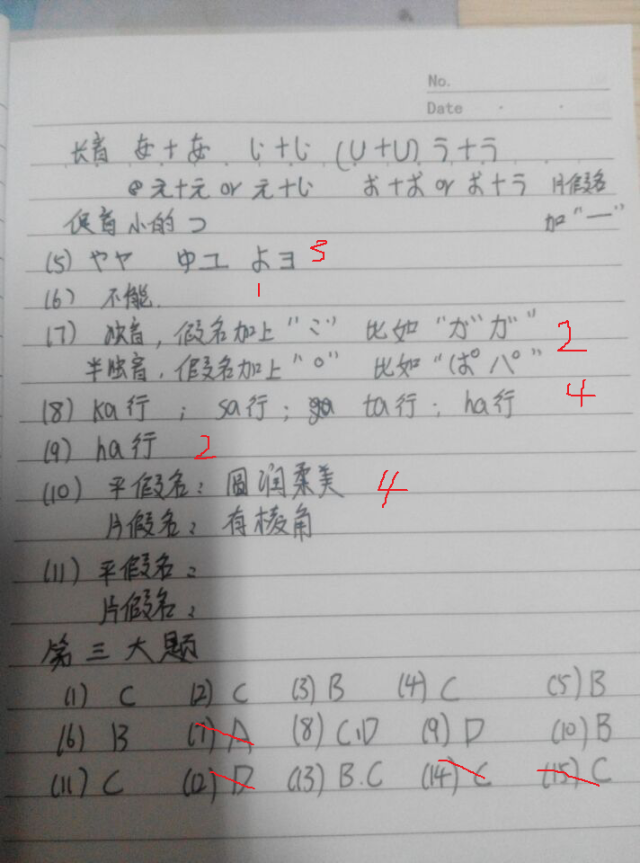 No.
Date
长音 あ+あ じ+じ (U+U) う+う
え+え or え+じ お+お or お+う 片假名
促音 小的つ 加“一”
(5) ややヤ ゆユ よヨ 5
(6) 不能. 1
(7) 浊音,假名加上“゛” 比如“がガ” 2
半浊音,假名加上“°” 比如“ぱパ”
(8) ka行; sa行; ta行; ha行 4
(9) ha行 2
(10) 平假名: 圆润柔美 4
片假名: 有棱角
(11) 平假名:
片假名:
第三大题
(1) C (2) C (3) B (4) C (5) B
(6) B (7) A (8) C,D (9) D (10) B
(11) C (12) D (13) B.C (14) C (15) C